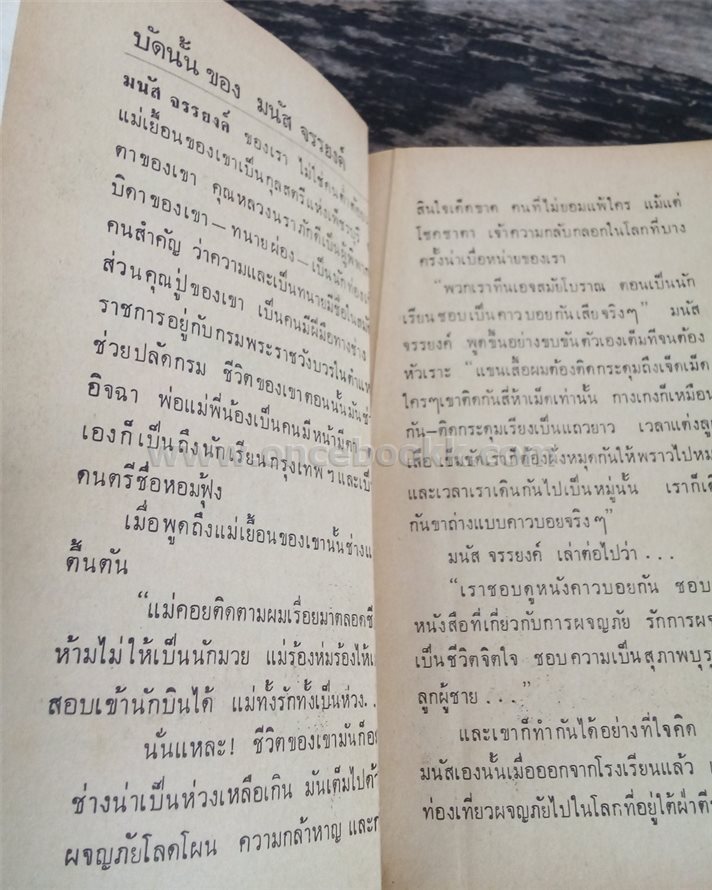 บัดนั้น ของ มนัส จรรยงค์
มนัส จรรยงค์ ของเรา ไม่ใช่คนต่ำ
แม่เยื้อนของเขาเป็นกุลสตรีแห่งเพ็ชรบุรี
ตาของเขา คุณหลวงนราภักดีเป็นผู้พิพากษา
บิดาของเขา — ทนายผ่อง — เป็นนัก
คนสำคัญ ว่าความและเป็นทนายมีชื่อใน
ส่วนคุณปู่ของเขา เป็นคนมีฝีมือทางช่าง
ราชการอยู่กับกรมพระราชวังบวรในตำแห
ช่วยปลัดกรม ชีวิตของเขาตอนนั้นมัน
อิจฉา พ่อแม่พี่น้องเป็นคนมีหน้ามีตา
เองก็เป็นถึงนักเรียนกรุงเทพฯ และเป็
ดนตรีชื่อหอมฟุ้ง
เมื่อพูดถึงแม่เยื้อนของเขานั้นช่าง
ตื้นตัน
“แม่คอยติดตามผมเรื่อยมาตลอดชี
ห้ามไม่ให้เป็นนักมวย แม่ร้องห่มร้องไห้
สอบเข้านักบินได้ แม่ทั้งรักทั้งเป็นห่วง..
นั่นแหละ! ชีวิตของเขามันก็
ช่างน่าเป็นห่วงเหลือเกิน มันเต็มไปด้ว
ผจญภัยโลดโผน ความกล้าหาญ และ
สินใจเด็ดขาด คนที่ไม่ยอมแพ้ใคร แม้แต่
โชคชาตา เจ้าความกลับกลอกในโลกที่บาง
ครั้งน่าเบื่อหน่ายของเรา
“พวกเราทีนเอจสมัยโบราณ ตอนเป็นนัก
เรียนชอบเป็นคาวบอยกันเสียจริงๆ” มนัส
จรรยงค์ พูดขึ้นอย่างขบขันตัวเองเต็มทีจนต้อง
หัวเราะ “แขนเสื้อผมต้องติดกระดุมถึงเจ็ดเม็ด
ใครๆเขาติดกันสี่ห้าเม็ดเท่านั้น กางเกงก็เหมือน
กัน-ติดกระดุมเรียงเป็นแถวยาว เวลาแต่งลู
เสือเข็มขัดเราก็ต้องฝังหมุดกันให้พราวไปหม
และเวลาเราเดินกันไปเป็นหมู่นั้น เราก็เดิ
กันขาถ่างแบบคาวบอยจริงๆ”
มนัส จรรยงค์ เล่าต่อไปว่า . . .
“เราชอบดูหนังคาวบอยกัน ชอบ
หนังสือที่เกี่ยวกับการผจญภัย รักการผจ
เป็นชีวิตจิตใจ ชอบความเป็นสุภาพบุรุ
ลูกผู้ชาย . . .”
และเขาก็ทำกันได้อย่างที่ใจคิด
มนัสเองนั้นเมื่อออกจากโรงเรียนแล้ว
ท่องเที่ยวผจญภัยไปในโลกที่อยู่ใต้ฝ่าตีน
www.oncebookk.com